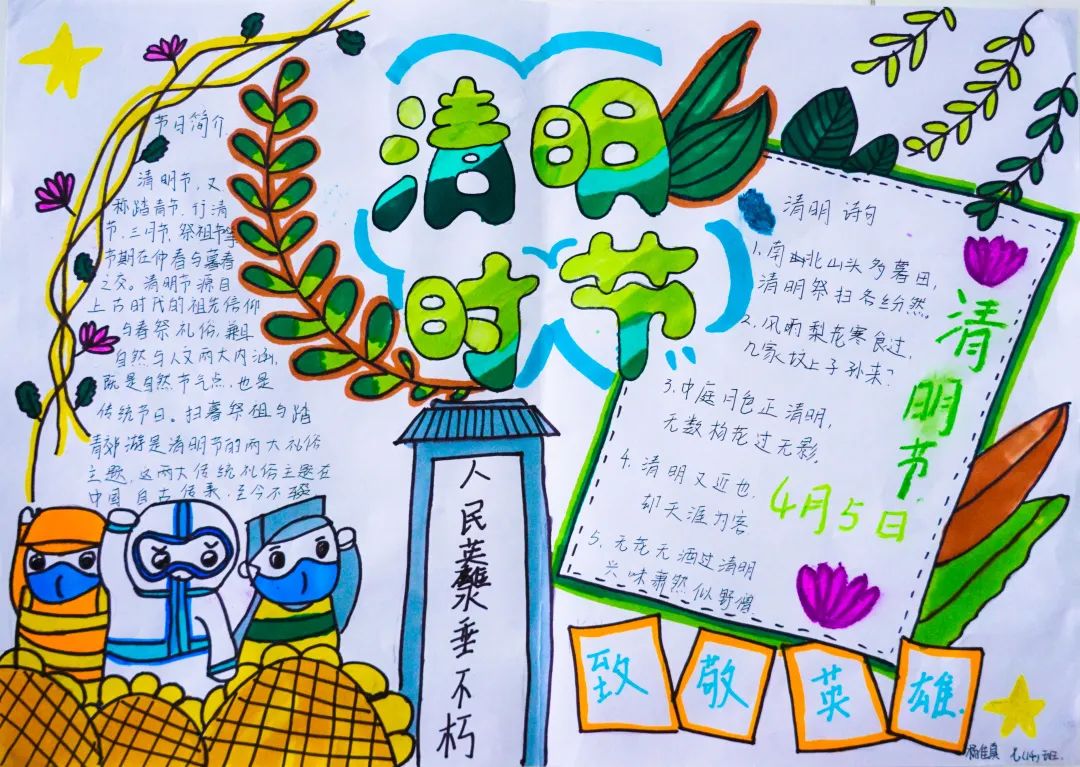 清明
时节
节日简介
清明节，又
称踏青节、行清
节、三月节、祭祖节等
节期在仲春与暮春
之交。清明节源自
上古时代的祖先信仰
与春祭礼俗，兼具
自然与人文两大内涵，
既是自然节气点，也是
传统节日。扫墓祭祖与踏
青郊游是清明节的两大礼俗
主题，这两大传统礼俗主题在
中国自古传承，至今不辍
人民英雄永垂不朽
清明诗句
1.南北山头多墓田，
清明祭扫各纷然。
2.风雨梨花寒食过，
几家坟上子孙来？
3.中庭月色正清明，
无数杨花过无影。
4.清明又近也，
却天涯为客
5.无花无酒过清明
兴味萧然似野僧
清明节
4月5日
致敬英雄